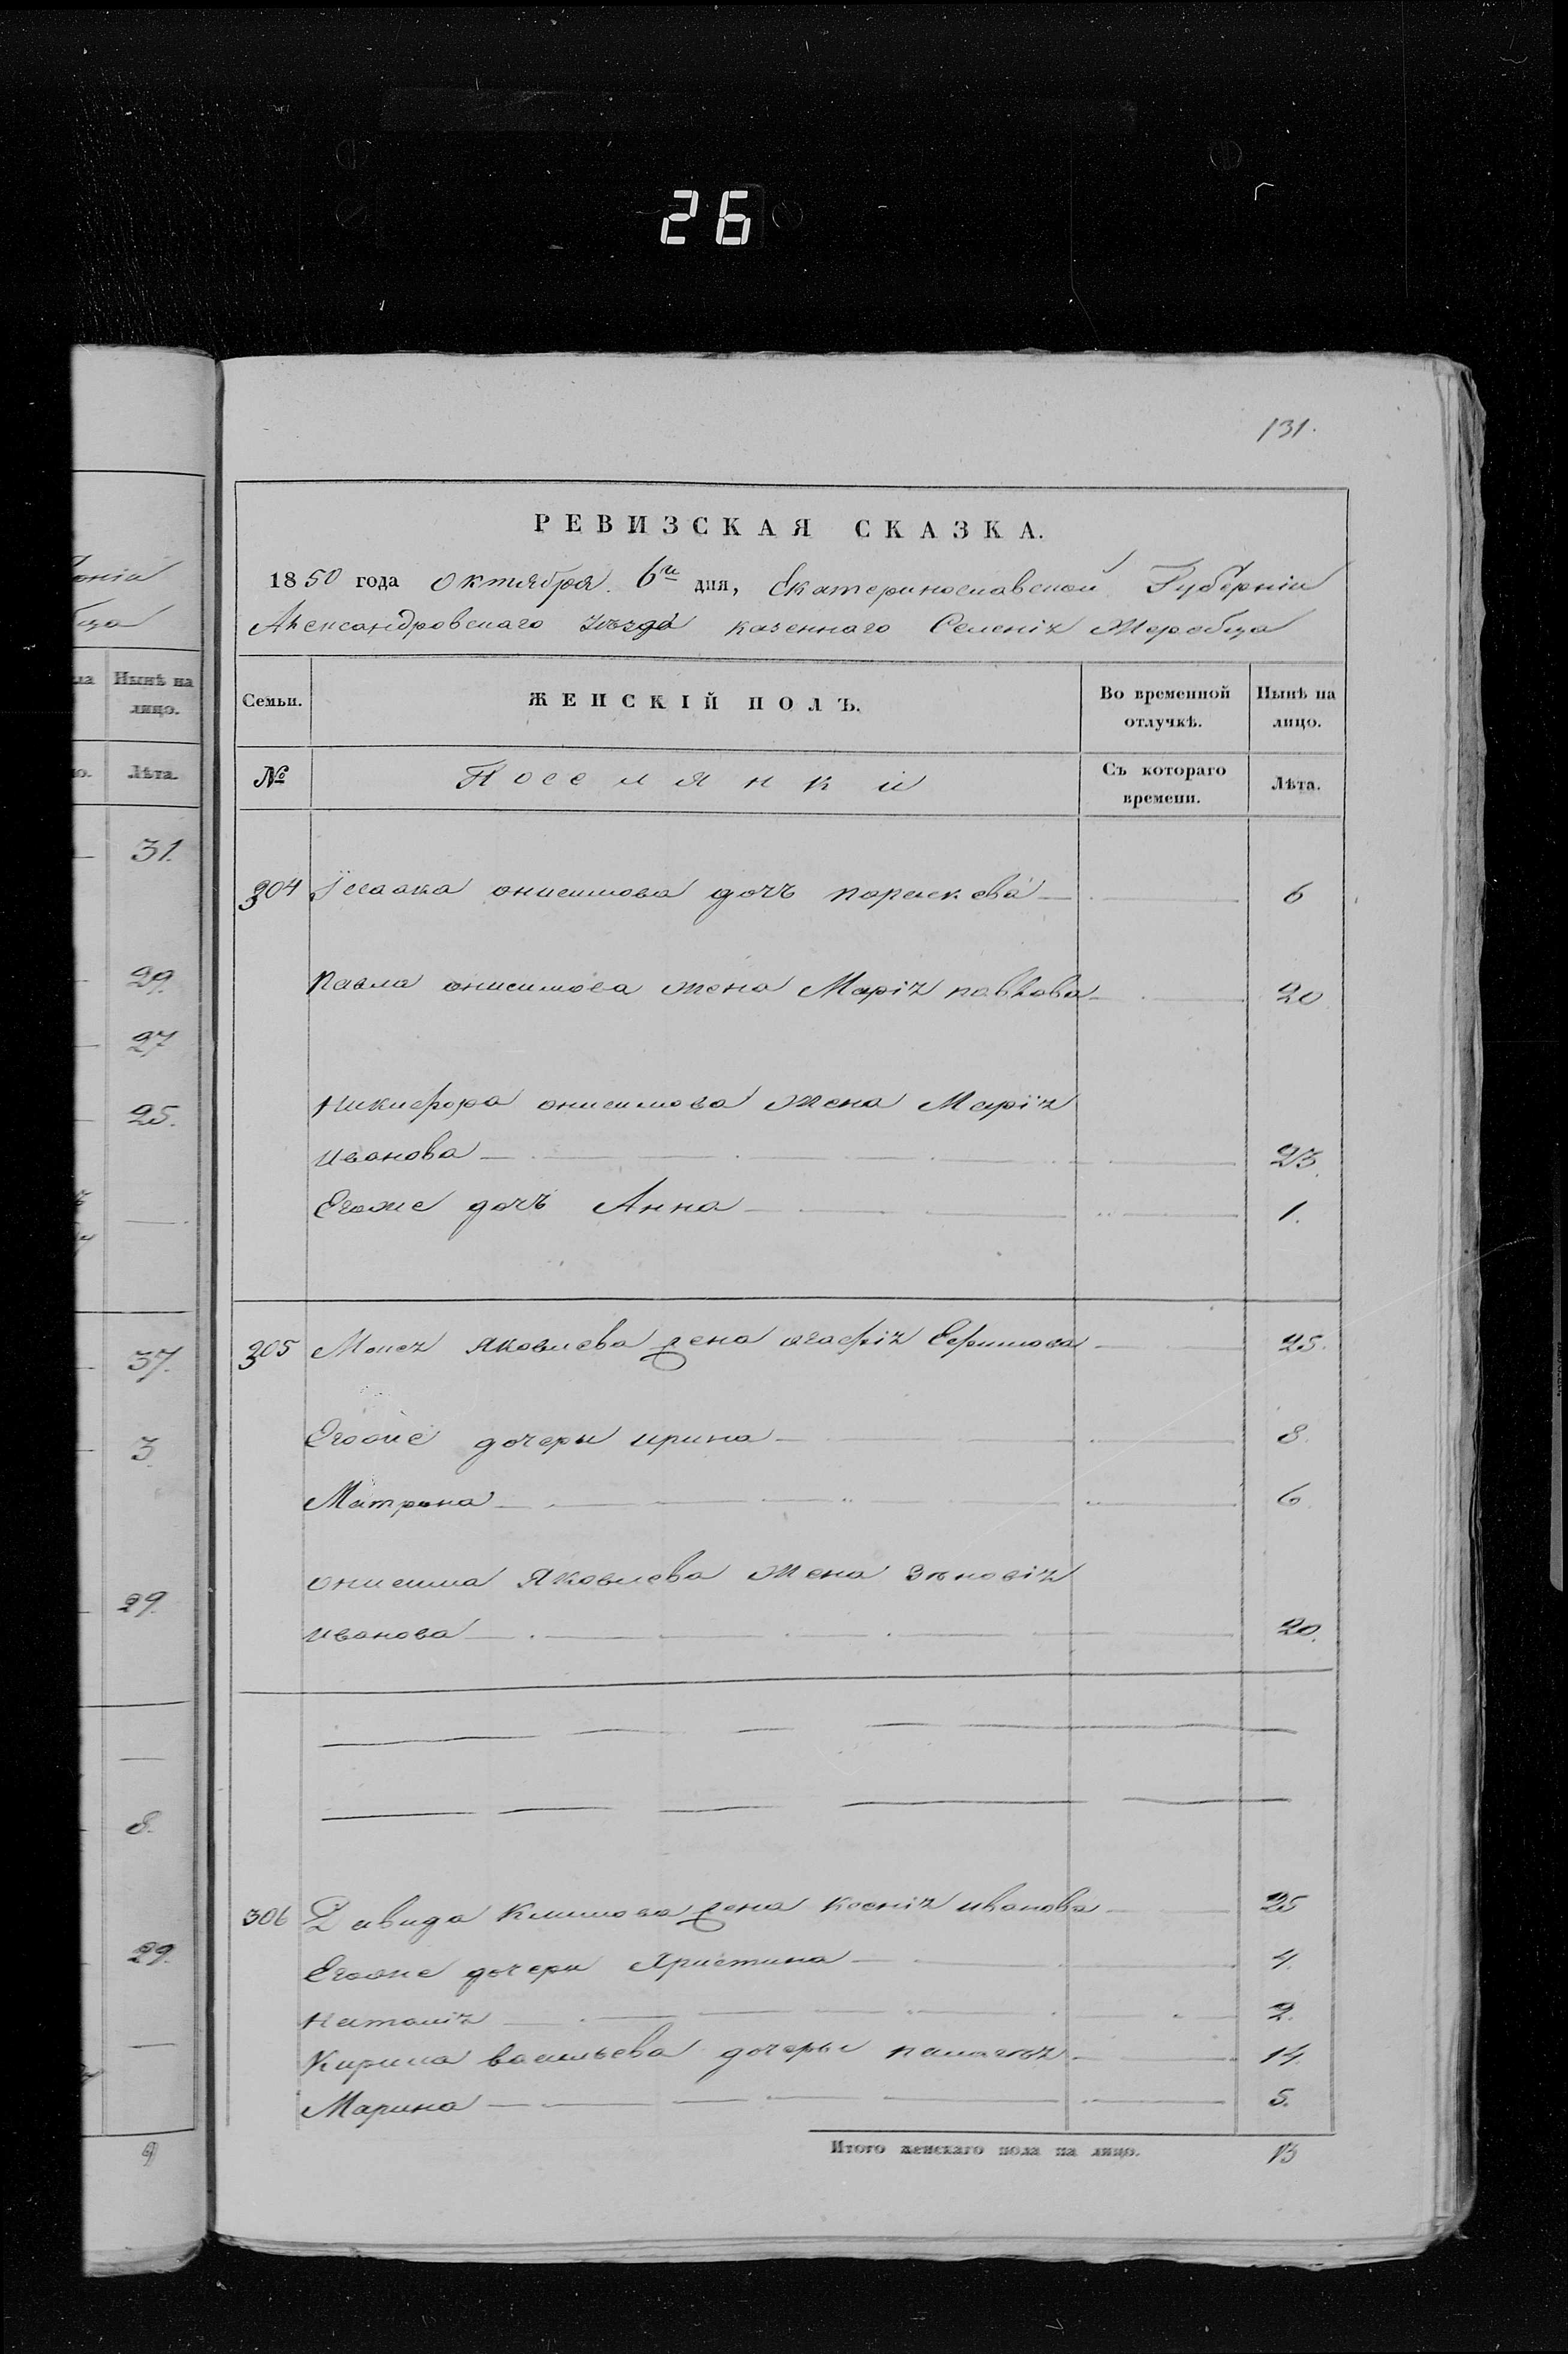 26
131.
РЕВИЗСКАЯ СКАЗКА.
1850 года Октября 6го дня, Екатеринославской Губерніи
Александровскаго Уезда казеннаго Селенія Жеребца
Нынѣ на лицо.
Лѣта.
31.
29.
27
25.
37.
3.
29.
8.
29.
Семьи. ЖЕНСКІЙ ПОЛЪ. Во временной отлучкѣ. Нынѣ на лицо.
№ Поселянки Съ котораго времени. Лѣта.
304 Ісаака онисимова дочь параскева 6
павла онисимова жена Марія павлова 20
Никифора онисимова жена Марія
иванова 23.
Егоже дочь Анна 1.
305 Моисея яковлева жена агафія Ефимова 25.
Егоже дочери ирина 8.
Матрона 6
онисима Яковлева жена Зѣновія
иванова 20.
306 Давида климова жена ксенія иванова 25
Егоже дочери Христина 4.
Наталія 2.
Кирила васильева дочери палагея 14.
Марина 5.
Итого женскаго пола на лицо. 13